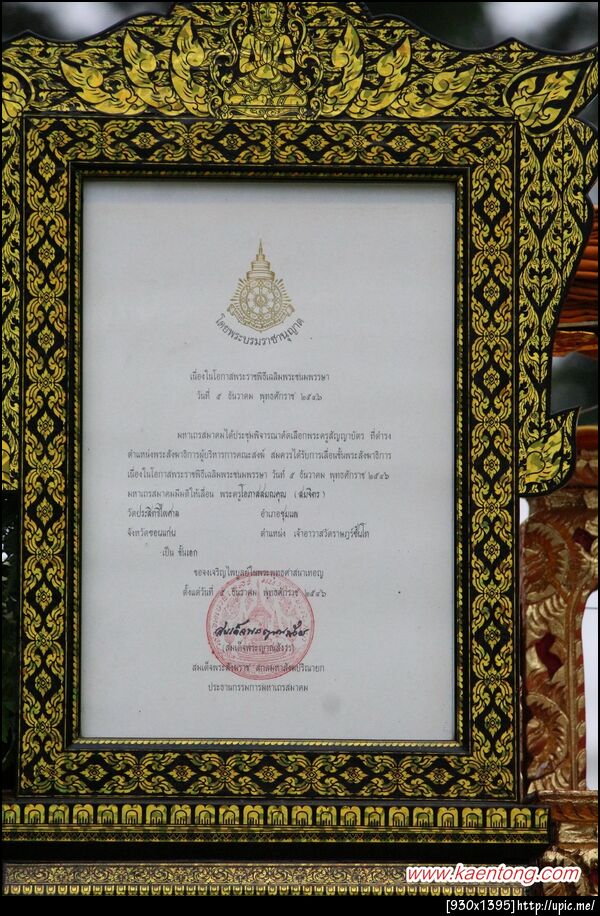 โดยพระบรมราชานุญาต
เนื่องในโอกาสพระราชพิธีเฉลิมพระชนมพรรษา
วันที่ ๕ ธันวาคม พุทธศักราช ๒๕๔๖
มหาเถรสมาคมได้ประชุมพิจารณาคัดเลือกพระครูสัญญาบัตร ที่ดำรง
ตำแหน่งพระสังฆาธิการผู้บริหารการคณะสงฆ์ สมควรได้รับการเลื่อนชั้นพระสังฆาธิการ
เนื่องในโอกาสพระราชพิธีเฉลิมพระชนมพรรษา วันที่ ๕ ธันวาคม พุทธศักราช ๒๕๔๖
มหาเถรสมาคมมีมติให้เลื่อน พระครูโอภาสสมณคุณ (สมจิตร)
วัดประสิทธิ์ไพศาล อำเภอชุมแพ
จังหวัดขอนแก่น ตำแหน่ง เจ้าอาวาสวัดราษฎร์ชั้นโท
เป็น ชั้นเอก
ขอจงเจริญไพบูลย์ในพระพุทธศาสนาเทอญ
ตั้งแต่วันที่ ๕ ธันวาคม พุทธศักราช ๒๕๔๖
(สมเด็จพระญาณสังวร)
สมเด็จพระสังฆราช สกลมหาสังฆปริณายก
ประธานกรรมการมหาเถรสมาคม
www.kaentong.com
[930x1395]http://upic.me/